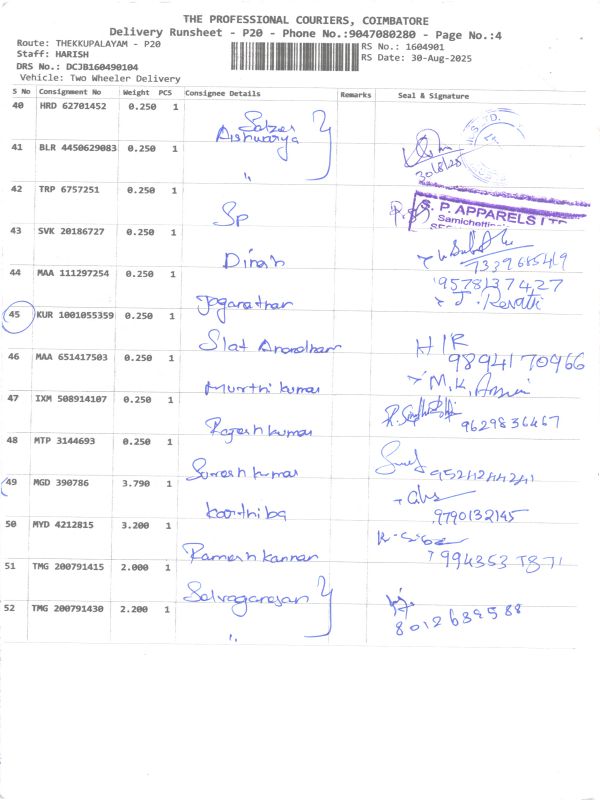 THE PROFESSIONAL COURIERS, COIMBATORE
Delivery Runsheet - P20 - Phone No.:9047080280 - Page No.:4
Route: THEKKUPALAYAM - P20
RS No.: 1604901
Staff: HARISH
RS Date: 30-Aug-2025
DRS No.: DCJB160490104
Vehicle: Two Wheeler Delivery
S No Consignment No Weight PCS Consignee Details Remarks Seal & Signature
40 HRD 62701452 0.250 1
Aishwarya
41 BLR 4450629083 0.250 1
30/8/25
42 TRP 6757251 0.250 1
Sp
S. P. APPARELS LTD
43 SVK 20186727 0.250 1
Dinesh
7339685419
44 MAA 111297254 0.250 1
9578137427
Joganathan
J. Revathi
45 KUR 1001055359 0.250 1
HIR
9894170966
46 MAA 651417503 0.250 1
Murthi kumar
M.K.
47 IXM 508914107 0.250 1
Rajesh kumar
9629836467
48 MTP 3144693 0.250 1
Suresh kumar
9524244241
49 MGD 390786 3.790 1
Karthiba
9790132145
50 MYD 4212815 3.200 1
Ramesh Kannan
51 TMG 200791415 2.000 1
Selvaganasan
52 TMG 200791430 2.200 1
8012689588